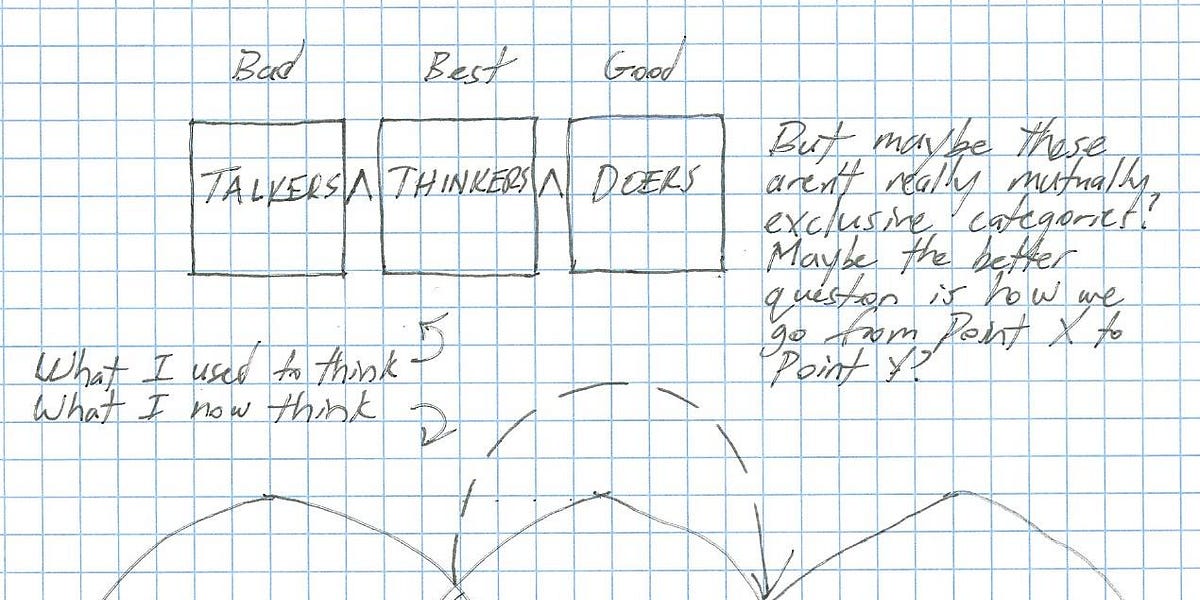 Bad Best Good
TALKERS ∧ THINKERS ∧ DOERS
But maybe these
aren't really mutually
exclusive categories?
Maybe the better
question is how we
go from Point X to
Point Y?
What I used to think
What I now think